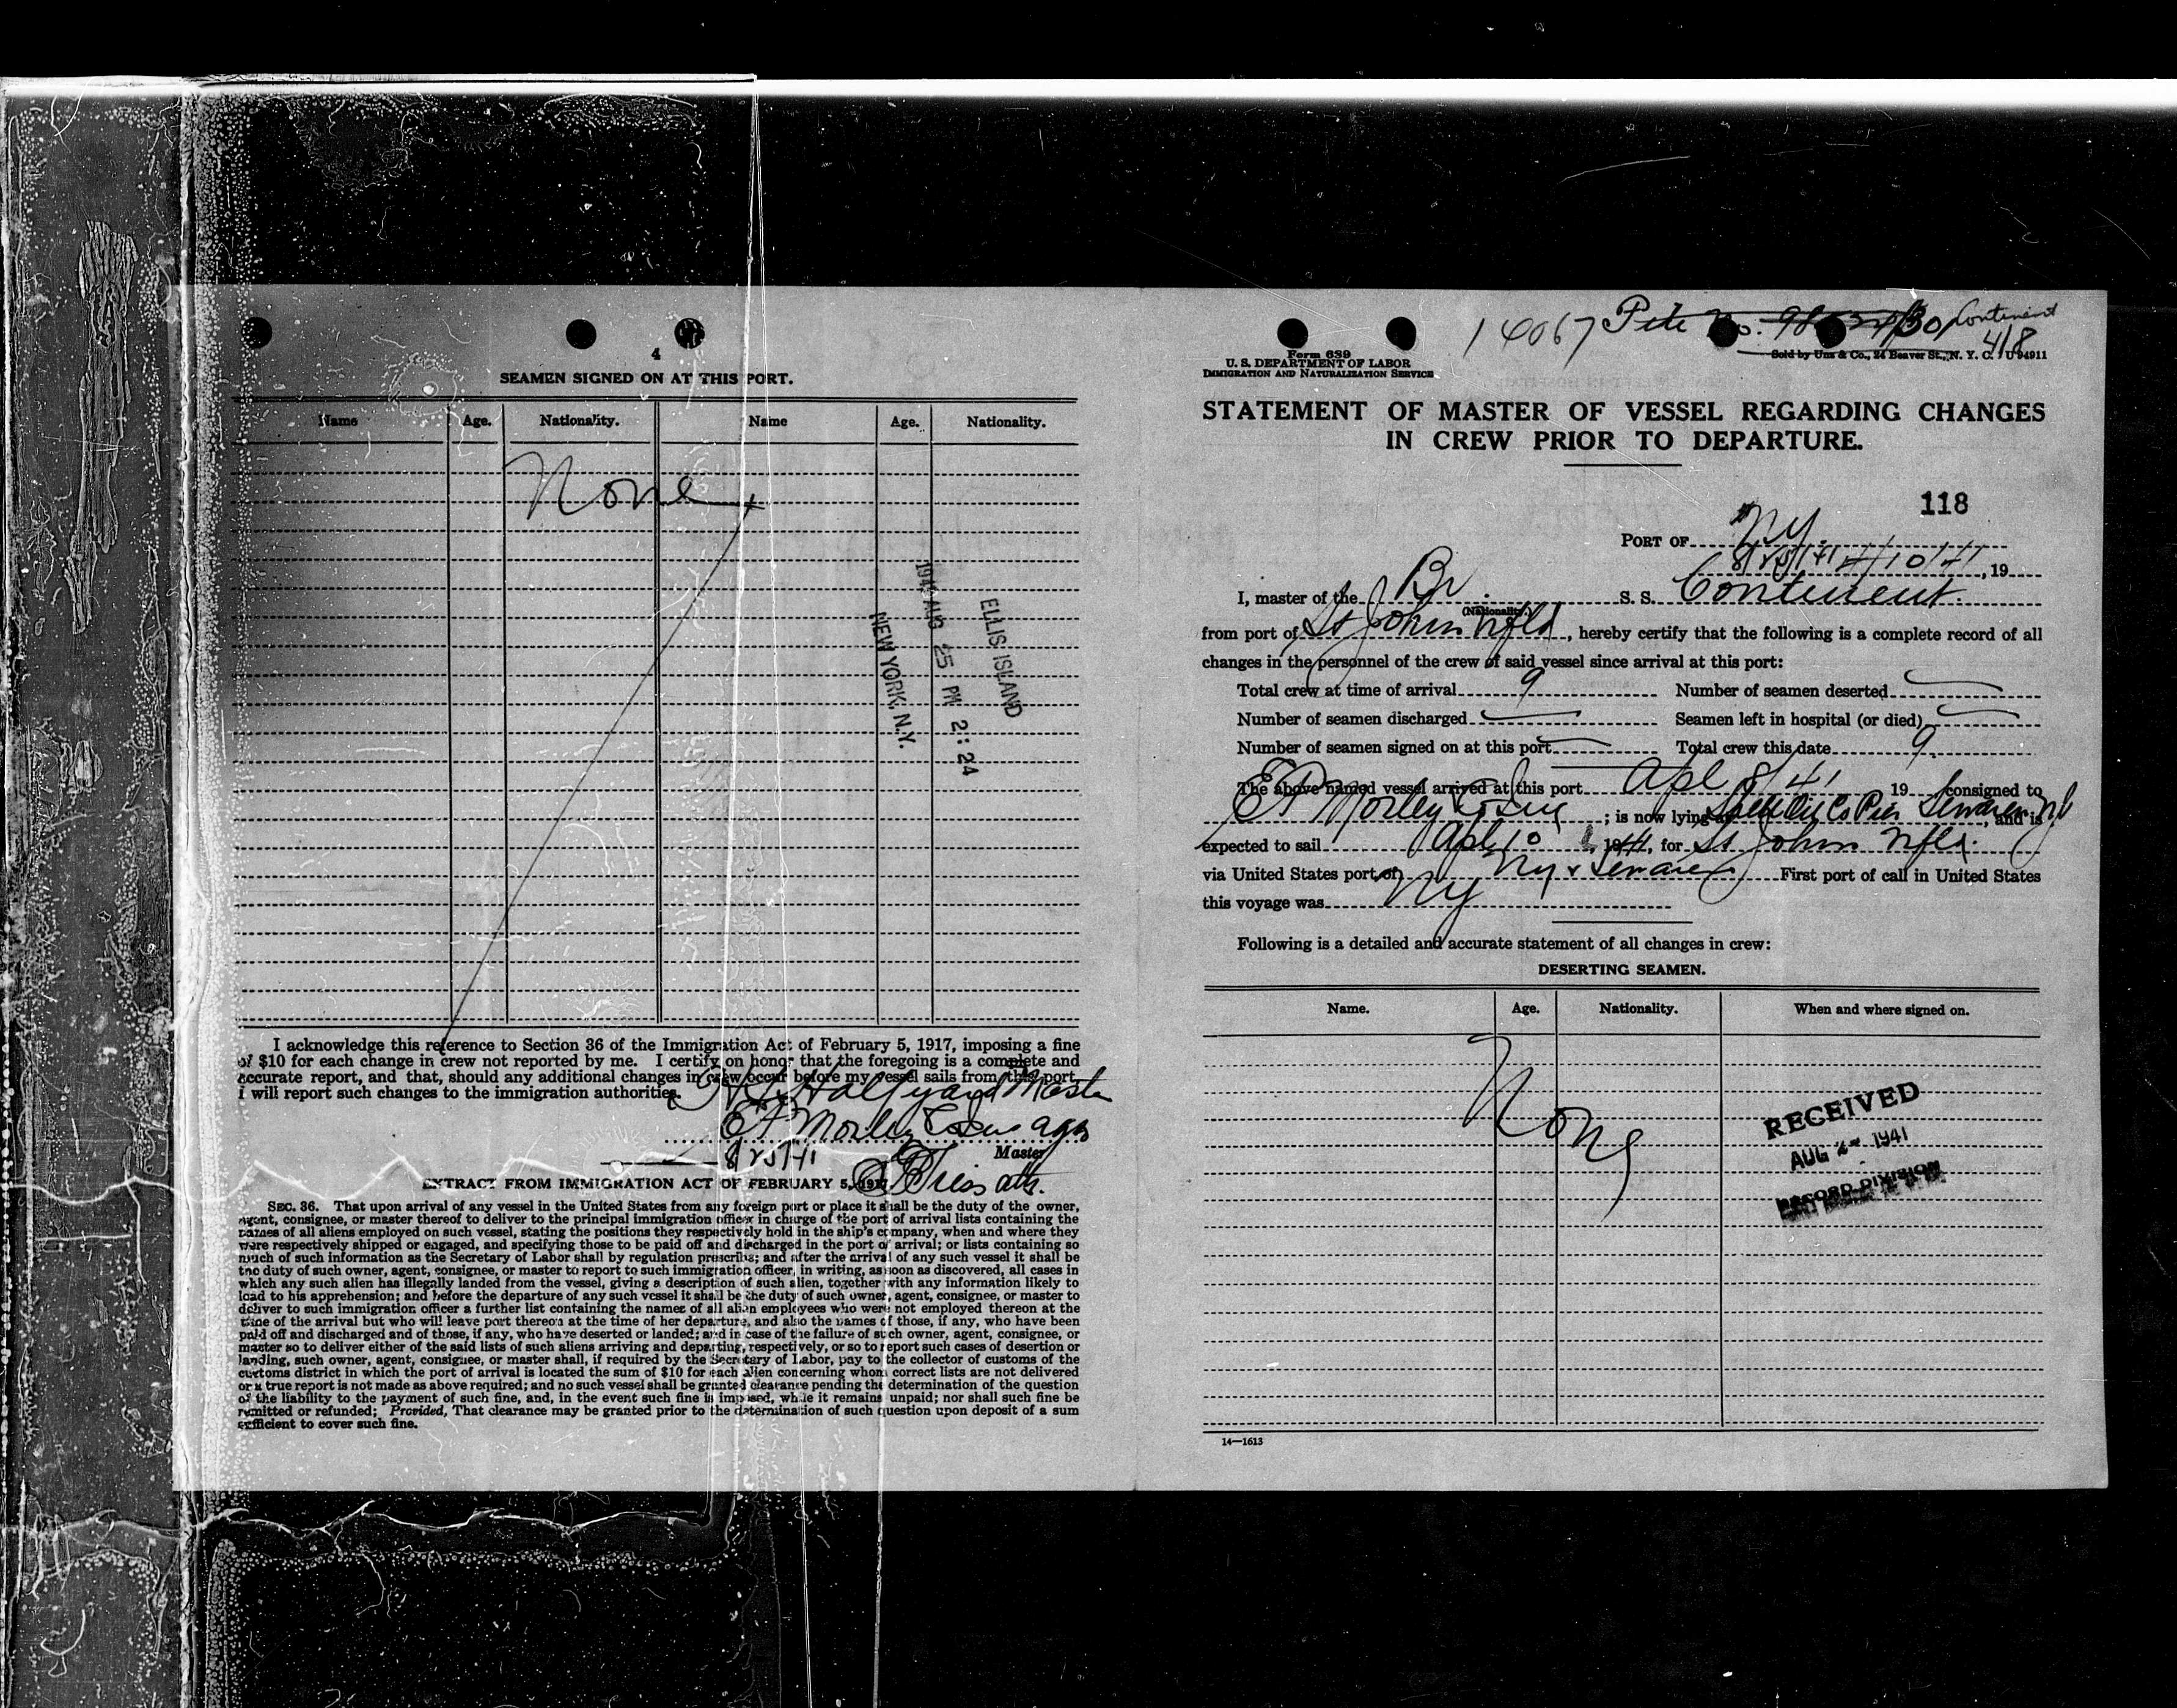 4
SEAMEN SIGNED ON AT THIS PORT.
Name Age. Nationality. Name Age. Nationality.
None
ELLIS ISLAND
1941 AUG 25 PM 2:24
NEW YORK, N.Y.
I acknowledge this reference to Section 36 of the Immigration Act of February 5, 1917, imposing a fine
of $10 for each change in crew not reported by me. I certify on honor that the foregoing is a complete and
accurate report, and that, should any additional changes in crew occur before my vessel sails from this port,
I will report such changes to the immigration authorities.
Halfyard Master
E A Morley & Son agts
8/25/41 Master
EXTRACT FROM IMMIGRATION ACT OF FEBRUARY 5, 1917
SEC. 36. That upon arrival of any vessel in the United States from any foreign port or place it shall be the duty of the owner,
agent, consignee, or master thereof to deliver to the principal immigration officer in charge of the port of arrival lists containing the
names of all aliens employed on such vessel, stating the positions they respectively hold in the ship's company, when and where they
were respectively shipped or engaged, and specifying those to be paid off and discharged in the port of arrival; or lists containing so
much of such information as the Secretary of Labor shall by regulation prescribe; and after the arrival of any such vessel it shall be
the duty of such owner, agent, consignee, or master to report to such immigration officer, in writing, as soon as discovered, all cases in
which any such alien has illegally landed from the vessel, giving a description of such alien, together with any information likely to
lead to his apprehension; and before the departure of any such vessel it shall be the duty of such owner, agent, consignee, or master to
deliver to such immigration officer a further list containing the names of all alien employees who were not employed thereon at the
time of the arrival but who will leave port thereon at the time of her departure, and also the names of those, if any, who have been
paid off and discharged and of those, if any, who have deserted or landed; and in case of the failure of such owner, agent, consignee, or
master so to deliver either of the said lists of such aliens arriving and departing, respectively, or so to report such cases of desertion or
landing, such owner, agent, consignee, or master shall, if required by the Secretary of Labor, pay to the collector of customs of the
customs district in which the port of arrival is located the sum of $10 for each alien concerning whom correct lists are not delivered
or a true report is not made as above required; and no such vessel shall be granted clearance pending the determination of the question
of the liability to the payment of such fine, and, in the event such fine is imposed, while it remains unpaid; nor shall such fine be
remitted or refunded; Provided, That clearance may be granted prior to the determination of such question upon deposit of a sum
sufficient to cover such fine.
14067 Continent
418
Form 639
U. S. DEPARTMENT OF LABOR
IMMIGRATION AND NATURALIZATION SERVICE
Sold by Unz & Co., 24 Beaver St., N. Y. C.
STATEMENT OF MASTER OF VESSEL REGARDING CHANGES
IN CREW PRIOR TO DEPARTURE.
118
PORT OF NY.
8/25/41 4/10/41, 19
I, master of the Br. S. S. Continent.
(Nationality)
from port of St Johns Nfld, hereby certify that the following is a complete record of all
changes in the personnel of the crew of said vessel since arrival at this port:
Total crew at time of arrival 9 Number of seamen deserted —
Number of seamen discharged — Seamen left in hospital (or died) —
Number of seamen signed on at this port — Total crew this date 9.
The above named vessel arrived at this port Apl 8/41 19 consigned to
E A Morley & Son; is now lying at Shell Oil Co Pier Sewaren NJ, and is
expected to sail Apl 10, 1941, for St Johns Nfld.
via United States port of NY & Sewaren First port of call in United States
this voyage was NY
Following is a detailed and accurate statement of all changes in crew:
DESERTING SEAMEN.
Name. Age. Nationality. When and where signed on.
None
RECEIVED
AUG 2 1941
RECORD DIVISION
14—1613